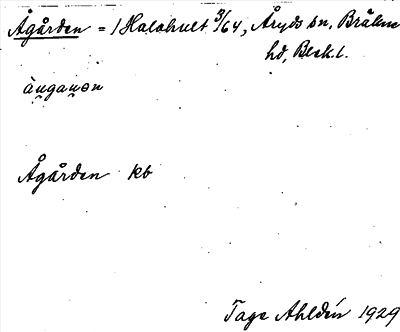 Ågården = 1 Halahult 3/64, Åryds sn, Bräkne
hd, Blek. l.
ànganən
Ågården kb
Tage Ahldén 1929